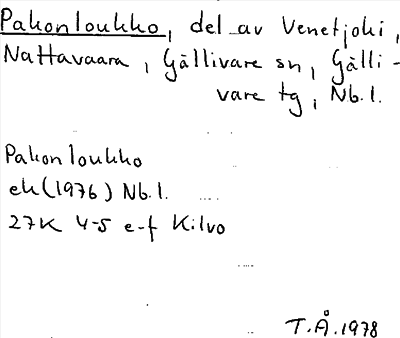 Pakonloukko, del av Venetjoki,
Nattavaara, Gällivare sn, Gälli-
vare tg, Nb.l.
Pakonloukko
ek(1976) Nb.l.
27K 4-5 e-f Kilvo
T.Å.1978